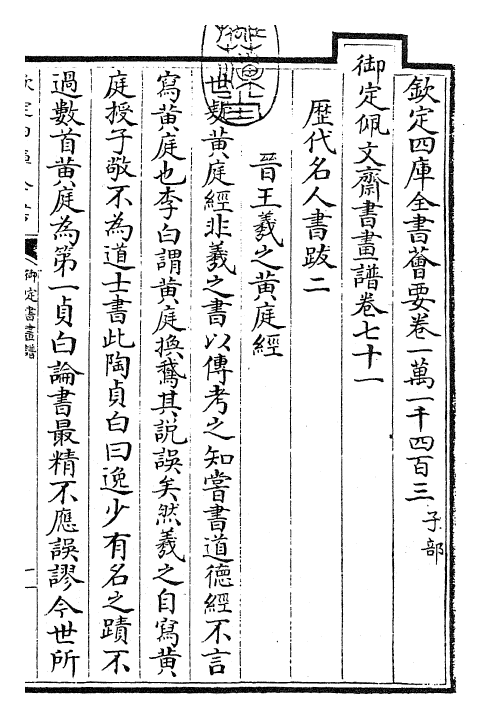 欽定四庫全書薈要卷一萬一千四百三 子部
御定佩文齋書畫譜卷七十一
歷代名人書跋二
晉王羲之黃庭經
世疑黃庭經非羲之書以傳考之知嘗書道德經不言
寫黃庭也李白謂黃庭換鵞其説誤矣然羲之自寫黃
庭授子敬不為道士書此陶貞白曰逸少有名之蹟不
過數首黃庭為第一貞白論書最精不應誤謬今世所
御定書畫譜